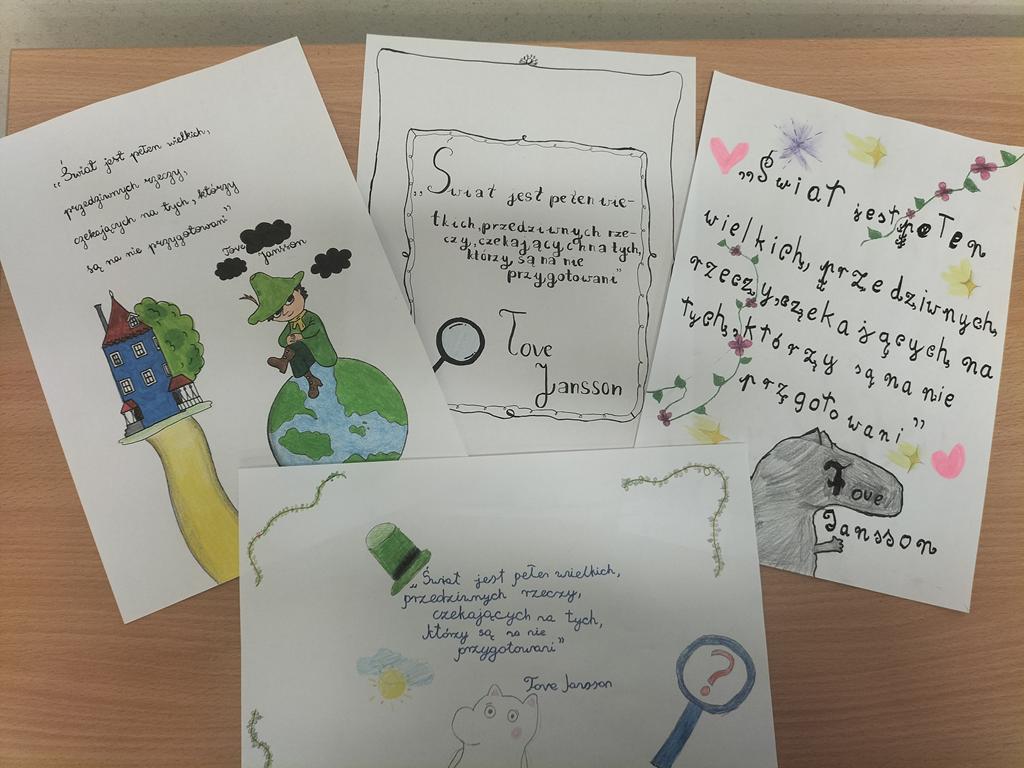 „Świat jest pełen wielkich,
przedziwnych rzeczy,
czekających na tych, którzy
są na nie przygotowani”
Tove Jansson
„Świat jest pełen wie-
lkich, przedziwnych rze-
czy, czekających na tych,
którzy są na nie
przygotowani”
Tove
Jansson
„Świat jest pełen
wielkich, przedziwnych,
rzeczy, czekających na
tych, którzy są na nie
przygotowani”
Tove
Jansson
„Świat jest pełen wielkich,
przedziwnych rzeczy,
czekających na tych,
którzy są na nie
przygotowani”
Tove Jansson
?